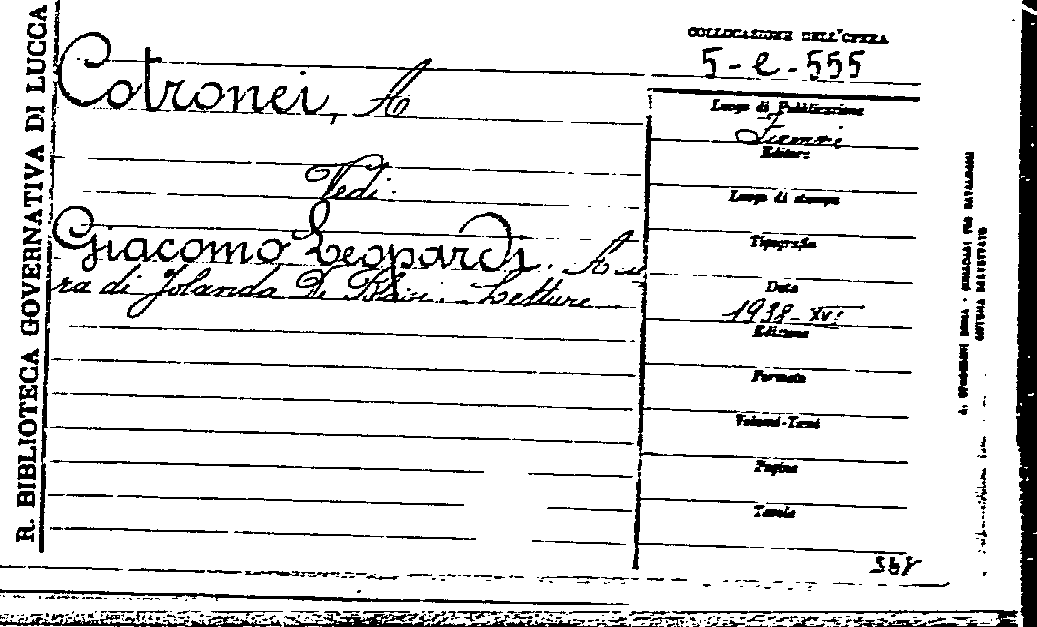 R. BIBLIOTECA GOVERNATIVA DI LUCCA
COLLOCAZIONE DELL'OPERA
5-e-555
Cotronei, A
Vedi:
Giacomo Leopardi. A cu
ra di Jolanda De Blasi. Letture
Luogo di Pubblicazione
Firenze
Editore
Luogo di stampa
Tipografia
Data
1938-XVI
Edizione
Formato
Volumi-Tomi
Pagine
Tavole
SBR